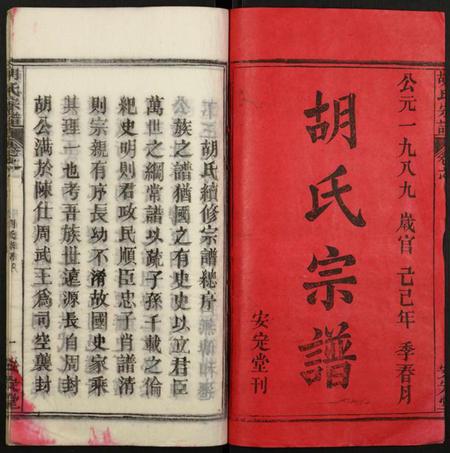 公元一九八九歲官己己年季春月
胡氏宗譜
安定堂刊
胡氏續修宗譜總序
族之譜猶國之有史史以立君臣
萬世之綱常譜以疏子孫千載之倫
紀史明則君政民順臣忠子肖譜清
則宗親有序長幼不淆故國史家乘
其理一也考吾族世遠源長自周封
胡公满於陳仕周武王爲司空襄封
胡氏宗譜
一
安定堂